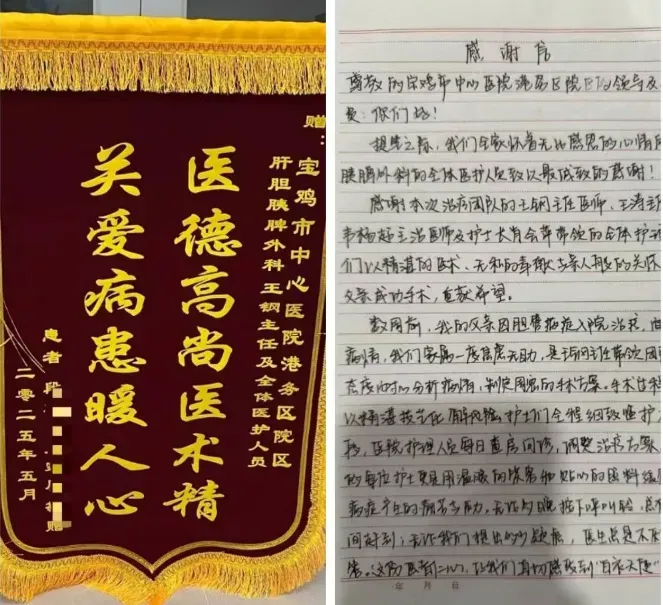 赠：宝鸡市中心医院港务区院区
肝胆胰脾外科王钢主任及全体医护人员
医德高尚医术精
关爱病患暖人心
患者 段
二零二五年五月
感谢信
尊敬的宝鸡市中心医院港务区院区的领导及
员：你们好！
提笔之际，我们全家怀着无比感恩的心情向
胰脾外科的全体医护人员致以最诚挚的感谢！
感谢本次治病团队的王钢主任医师、王涛主
韦杨好主治医师及护士长肖会萍带领的全体护
们以精湛的医术、无私的奉献与亲人般的关
父亲成功手术，重获希望。
数周前，我的父亲因胆管病症入院治疗，由
病情，我们家属一度焦虑无助，是王钢主任带领团
态度，耐心分析病情，制定周密的手术方案。手术过程
以精湛技艺化解风险，护士们全程细致监护
段，医院护理人员每日查房问诊，调整治疗方案
的每位护士更是用温暖的笑容和贴心的照料缓
病症产生的痛苦与无助，无论何时按下呼叫铃，总
间赶到；无论我们提出多少疑虑，医生总是不厌
答。这份医者仁心，让我们真切感受到“白衣天使”
年 月 日